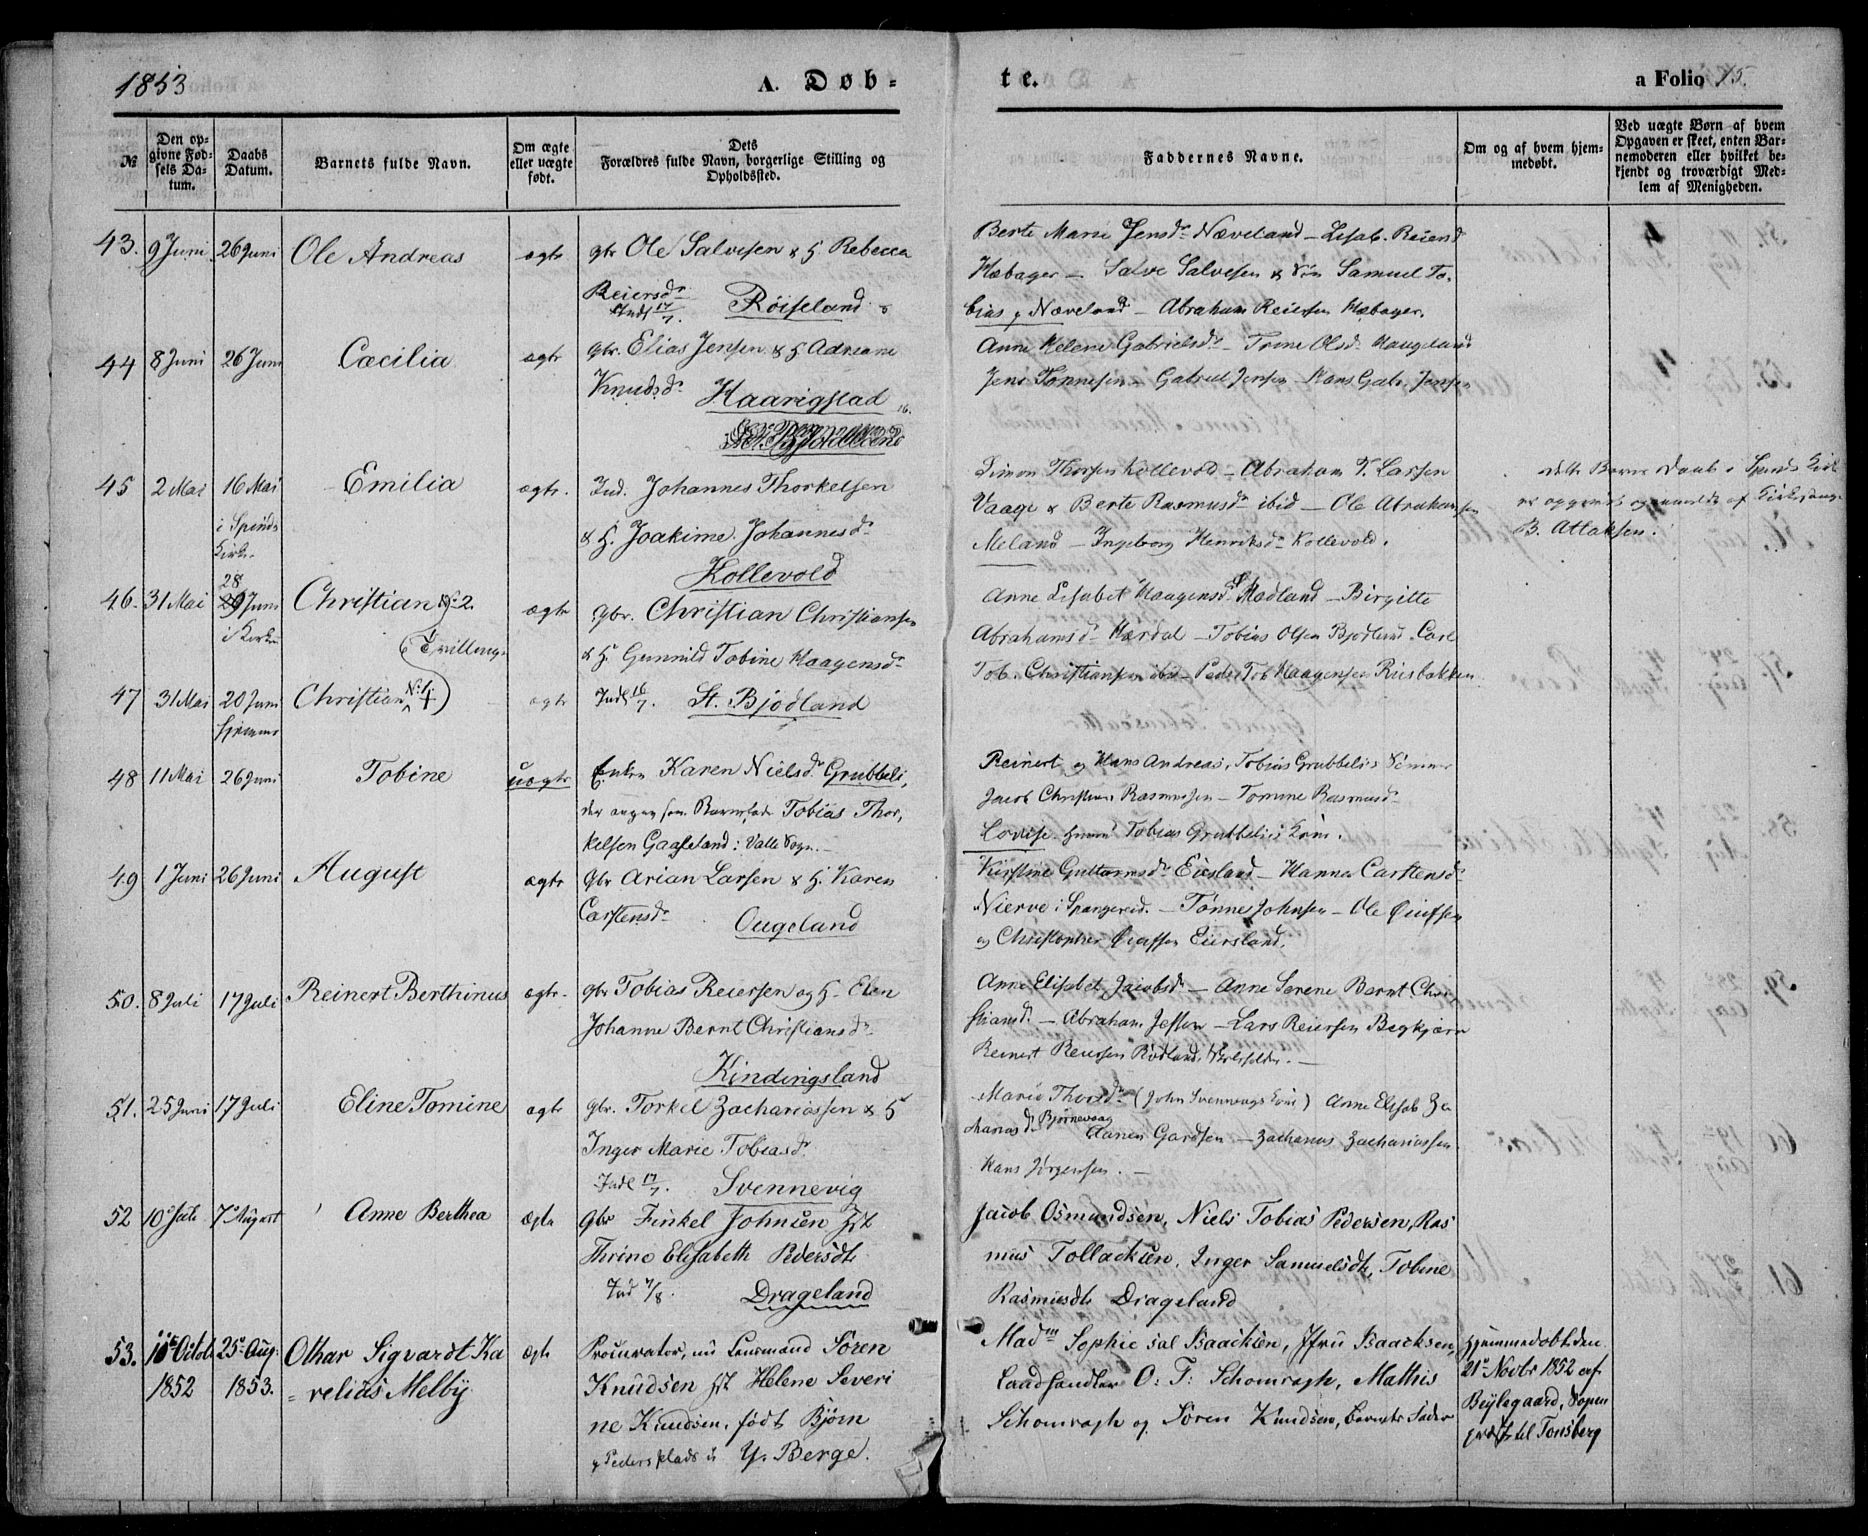 1853
A. Døb-
te.
a Folio 75.
№
Den opgivne Fødsels Datum.
Daabs Datum.
Barnets fulde Navn.
Om ægte eller uægte født.
Dets Forældres fulde Navn, borgerlige Stilling og Opholdssted.
Faddernes Navne.
Om og af hvem hjemmedøbt.
Ved uægte Børn af hvem Opgaven er skeet, enten Barnemoderen eller hvilket bekjendt og troværdigt Medlem af Menigheden.
43. 9 Juni 26 Juni Ole Andreas ægte
gbr Ole Salvesen & H Rebecca
Reiersdr
Indl 17/7. Røiseland
Berte Marie Jensdr Næveland – Lisab. Reiersd
Hæbager – Salve Salvesen & Samuel To-
bias Næveland – Abraham Reiersen Hæbager.
44 8 Juni 26 Juni Cæcilia ægte
gbr. Elias Jensen & H Adriane
Knudsdr Haarigstad
Anne Helene Gabrielsdr – Trine Olsdr Haugland
Jens Tønnesen – Gabriel Jensen – Hans Gabr. Jensen
45 2 Mai 16 Mai Emilia ægte.
i Spinds
Kirke
Ind. Johannes Thorkelsen
& H. Joakime Johannesdr
Kollevold
Simon Thorsen Kollevold – Abraham T. Larsen
Vaage & Berte Rasmusdr ibid – Ole Abrahamsen
Meland – Ingeborg Henriksdr Kollevold.
dette Barns Daab i Spinds Kirke
er opgivet og anmeldt af Kirkesanger
B. Attaksen.
46. 31 Mai 28 Juni Christian № 2. ægte
i Kirken
Tvillinger
gbr. Christian Christiansen
& H. Gunnild Tobine Haagensdr
Anne Lisabet Haagensdr Hadland – Birgitte
Abrahamsdr Hærdal – Tobias Olsen Bjodland – Carl
Tob. Christiansen ibid – Peder Tob Haagensen Riisbakken
47 31 Mai 20 Juni Christian № 1. ægte
hjemme
Indl 16/7. St. Bjodland
48 11 Mai 26 Juni Tobine uægte
Enken Karen Nielsdr Grubbeli,
der angav som Barnefader Tobias Thor-
kelsen Gaaseland i Valle Sogn. –
Reinert og Hans Andreas, Tobias Grubbelies Sønner
Jacob Christian Rasmussen – Tomine Rasmusdr
Lovise Tobias Grubbelies Kone.
49 1 Juni 26 Juni August ægte
gbr Arian Larsen & H. Karen
Carstensdr Ougeland
Kirstine Guttormsdr Eiesland – Hanna Carstensdr
Nierve i Spangereid. – Tønne Johnsen – Ole
og Christopher Eiersland.
50. 8 Juli 17 Juli Reinert Berthinus ægte.
gbr Tobias Reiersen og H. Elen
Johanne Bernt Christiansdr
Kindingsland
Anne Elisabet Jacobsdr – Anne Serene Bernt Chri-
stiansdr – Abraham Jessen – Lars Reiersen Begkjærn
Reinert Reiersen Rødland. –
51. 25 Juni 17 Juli Eline Tomine ægte
gbr. Torkel Zachariassen & H
Inger Marie Tobiasdr
Indl 17/7. Svennevig
Marie Thorsdr (John Svennevigs Kone) Anne Elisab Za-
chariasdr Bjørnevaag Aanen Gardsen – Zacharias Zachariassen
Hans Jørgensen. –
52 10 Juli 7 August Anne Berthea ægte
Gbr Finkel Johnsen H
Thrine Elisabeth Pedersdtr
Ind 7/8. Drageland
Jacob Osmundsen, Niels Tobias Pedersen, Ras
mus Tollacksen, Inger Samuelsdtr, Tobine
Rasmusdtr Drageland
53. Octob 25 Aug. Othar Sigvardt Ka ægte
1852 1853. relias Melby
Procurator, nu Lensmand Søren
Knudsen Helene Severi
ne Knudsen, født Bjørn
Pedersplads Y. Berge.
Mad Sophie sal Isaacksen, Jfru Isaacksen,
Landhandler O. T. Schomragh, Mathis
Schomragh og Søren Knudsen, Barnets Fader
Hjemmedøbt den
21 Novbr 1852 af
Beylegaard, Sogne
præst til Tønsberg